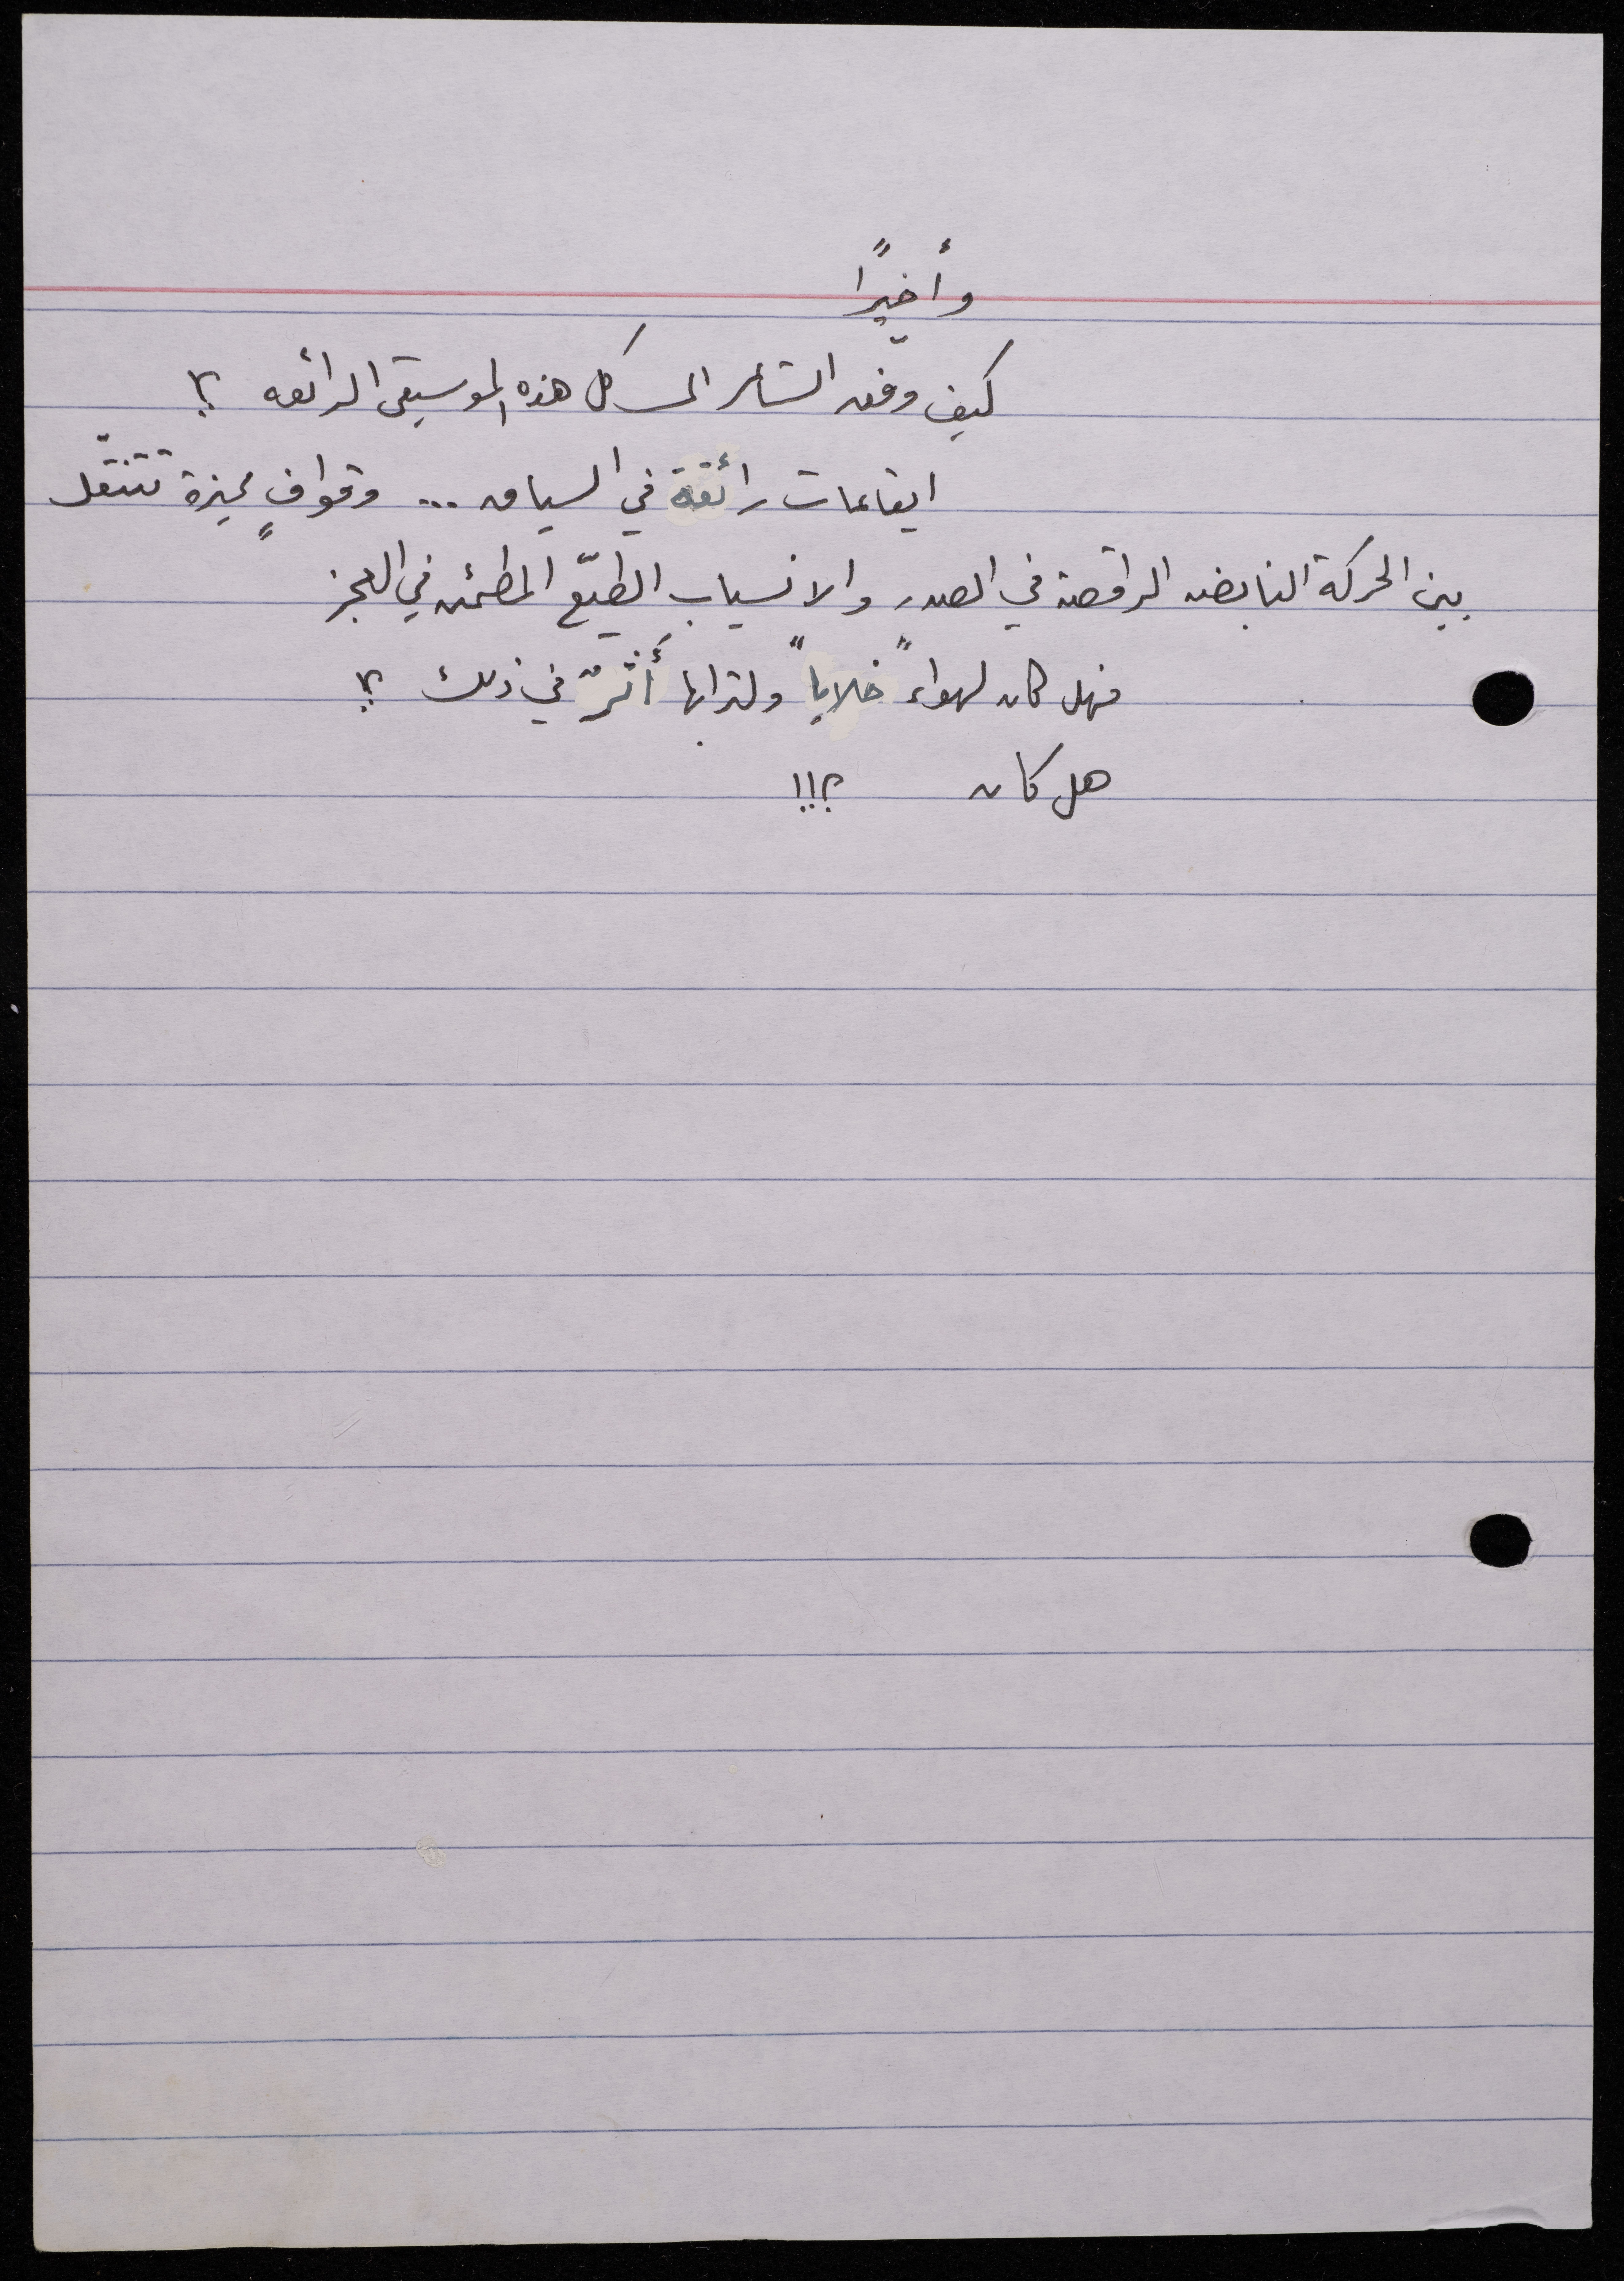 وأخيرًا
كيف وفّق الشاعر الى كل هذه الموسيقى الرائعه ؟!
ايقاعات رائقة في السياق ... وقوافٍ مميزة تتنقّل
بين الحركة النابضه الراقصة في الصدر والانسياب الطيّع المطمئن في العجز
فهل كان لهواء "خلايا" ولترابها أثرٌ في ذلك ؟!
هل كان ؟!!